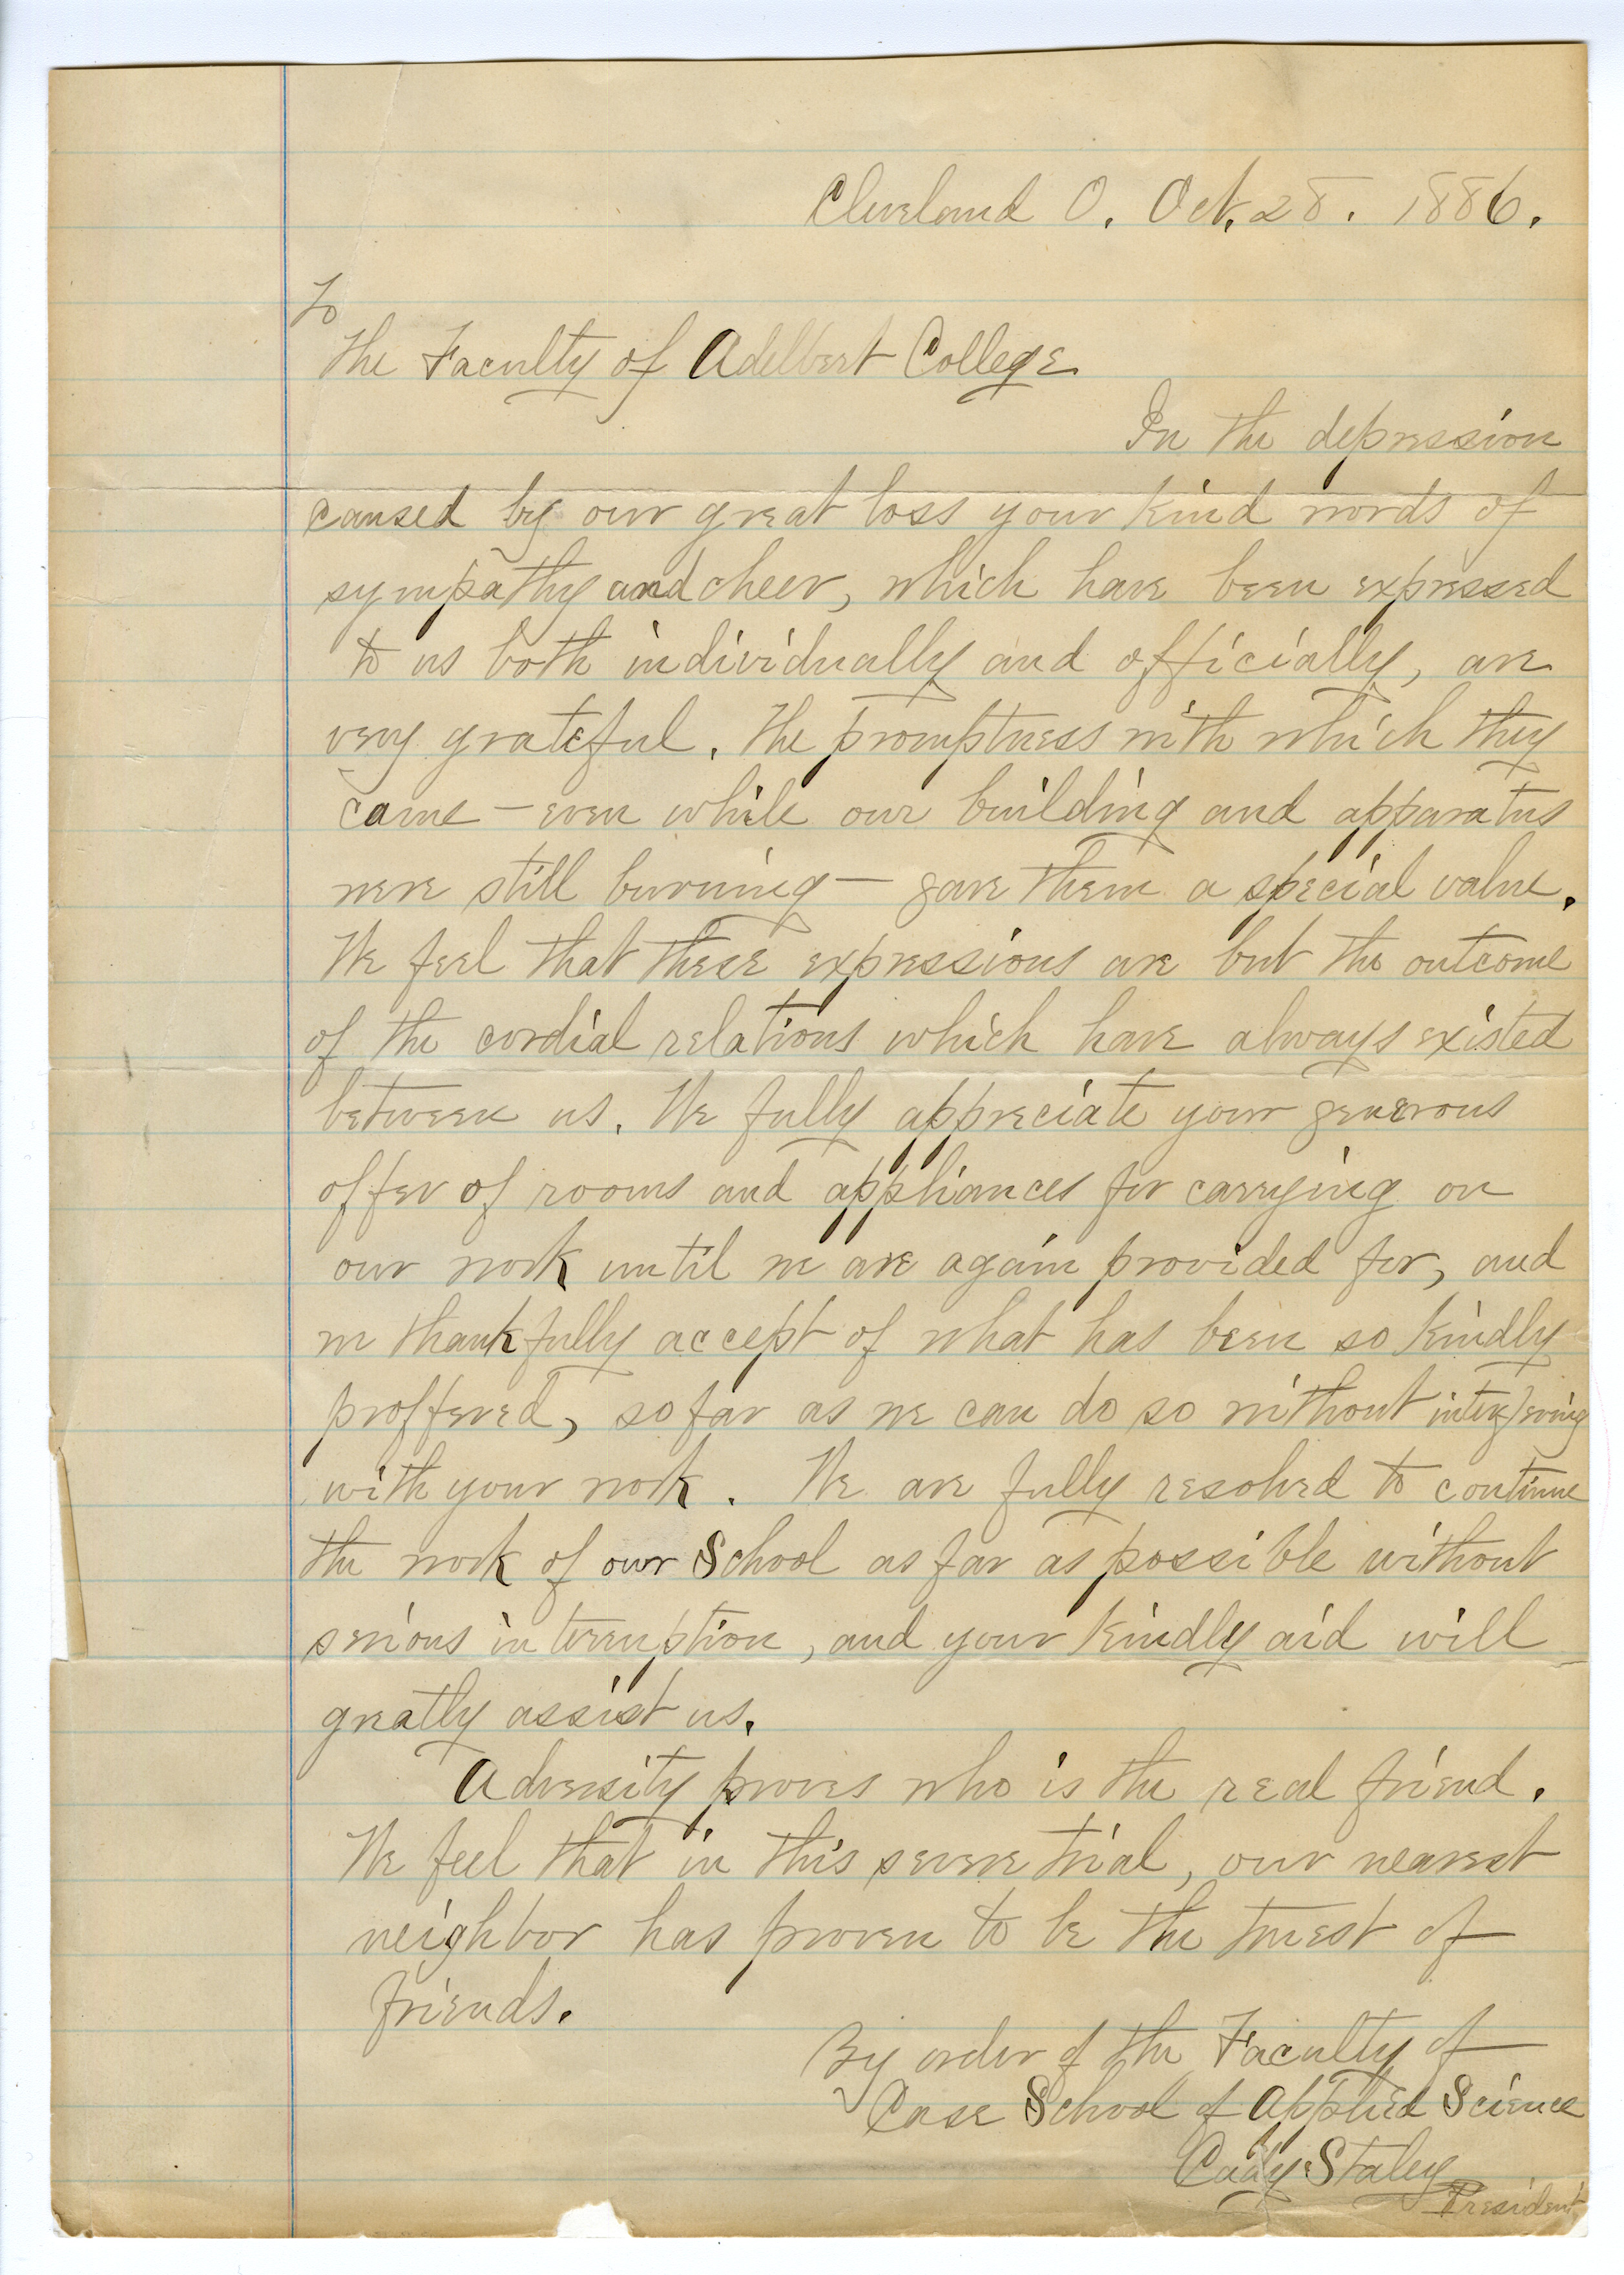 Cleveland O. Oct. 28. 1886.
To
The Faculty of Adelbert College
In the depression
caused by our great loss your kind words of
sympathy and cheer, which have been expressed
to us both individually and officially, are
very grateful. The promptness with which they
came — even while our building and apparatus
were still burning — gave them a special value.
We feel that these expressions are but the outcome
of the cordial relations which have always existed
between us. We fully appreciate your generous
offer of rooms and appliances for carrying on
our work until we are again provided for, and
we thankfully accept of what has been so kindly
proffered, so far as we can do so without interfering
with your work. We are fully resolved to continue
the work of our School as far as possible without
serious interruption, and your kindly aid will
greatly assist us.
Adversity proves who is the real friend.
We feel that in this severe trial, our nearest
neighbor has proven to be the truest of
friends.
By order of the Faculty of
Case School of Applied Science
Cady Staley
President